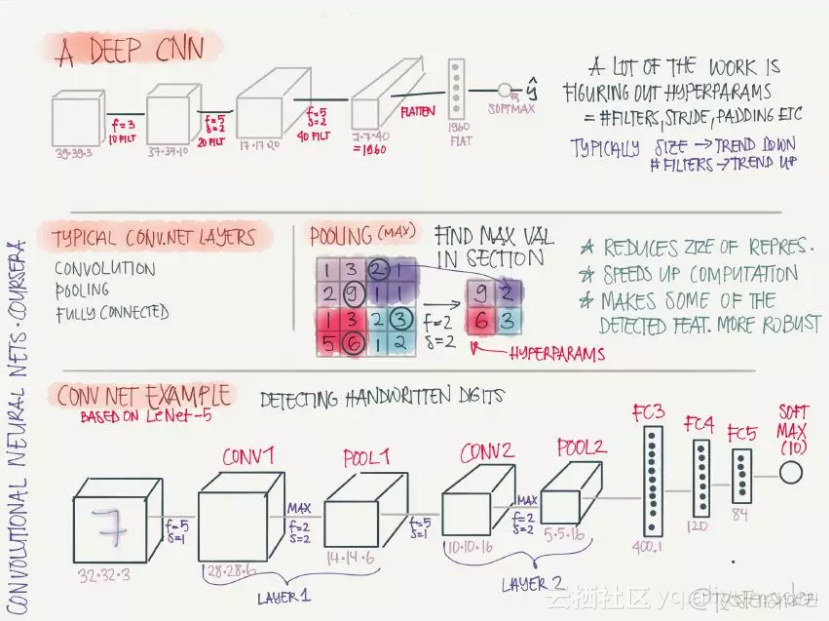 A DEEP CNN
39·39·3
f=3
10 FILT
37·37·10
f=5
s=2
20 FILT
17·17·20
f=5
s=2
40 FILT
7·7·40
=1960
FLATTEN
1960
FLAT
SOFTMAX
ŷ
A LOT OF THE WORK IS
FIGURING OUT HYPERPARAMS
= #FILTERS, STRIDE, PADDING ETC
TYPICALLY SIZE → TREND DOWN
#FILTERS → TREND UP
CONVOLUTIONAL NEURAL NETS · COURSERA
TYPICAL CONV.NET LAYERS
CONVOLUTION
POOLING
FULLY CONNECTED
POOLING (MAX)
FIND MAX VAL
IN SECTION
1 3 2 1
2 9 1 1
1 3 2 3
5 6 1 2
f=2
s=2
9 2
6 3
HYPERPARAMS
★ REDUCES SIZE OF REPRES.
★ SPEEDS UP COMPUTATION
★ MAKES SOME OF THE
DETECTED FEAT. MORE ROBUST
CONV NET EXAMPLE
BASED ON LeNet-5
DETECTING HANDWRITTEN DIGITS
7
32·32·3
f=5
s=1
CONV1
28·28·6
MAX
f=2
s=2
POOL1
14·14·6
LAYER 1
f=5
s=1
CONV2
10·10·16
MAX
f=2
s=2
POOL2
5·5·16
LAYER 2
FC3
400.1
FC4
120
FC5
84
SOFT
MAX
(10)
云栖社区